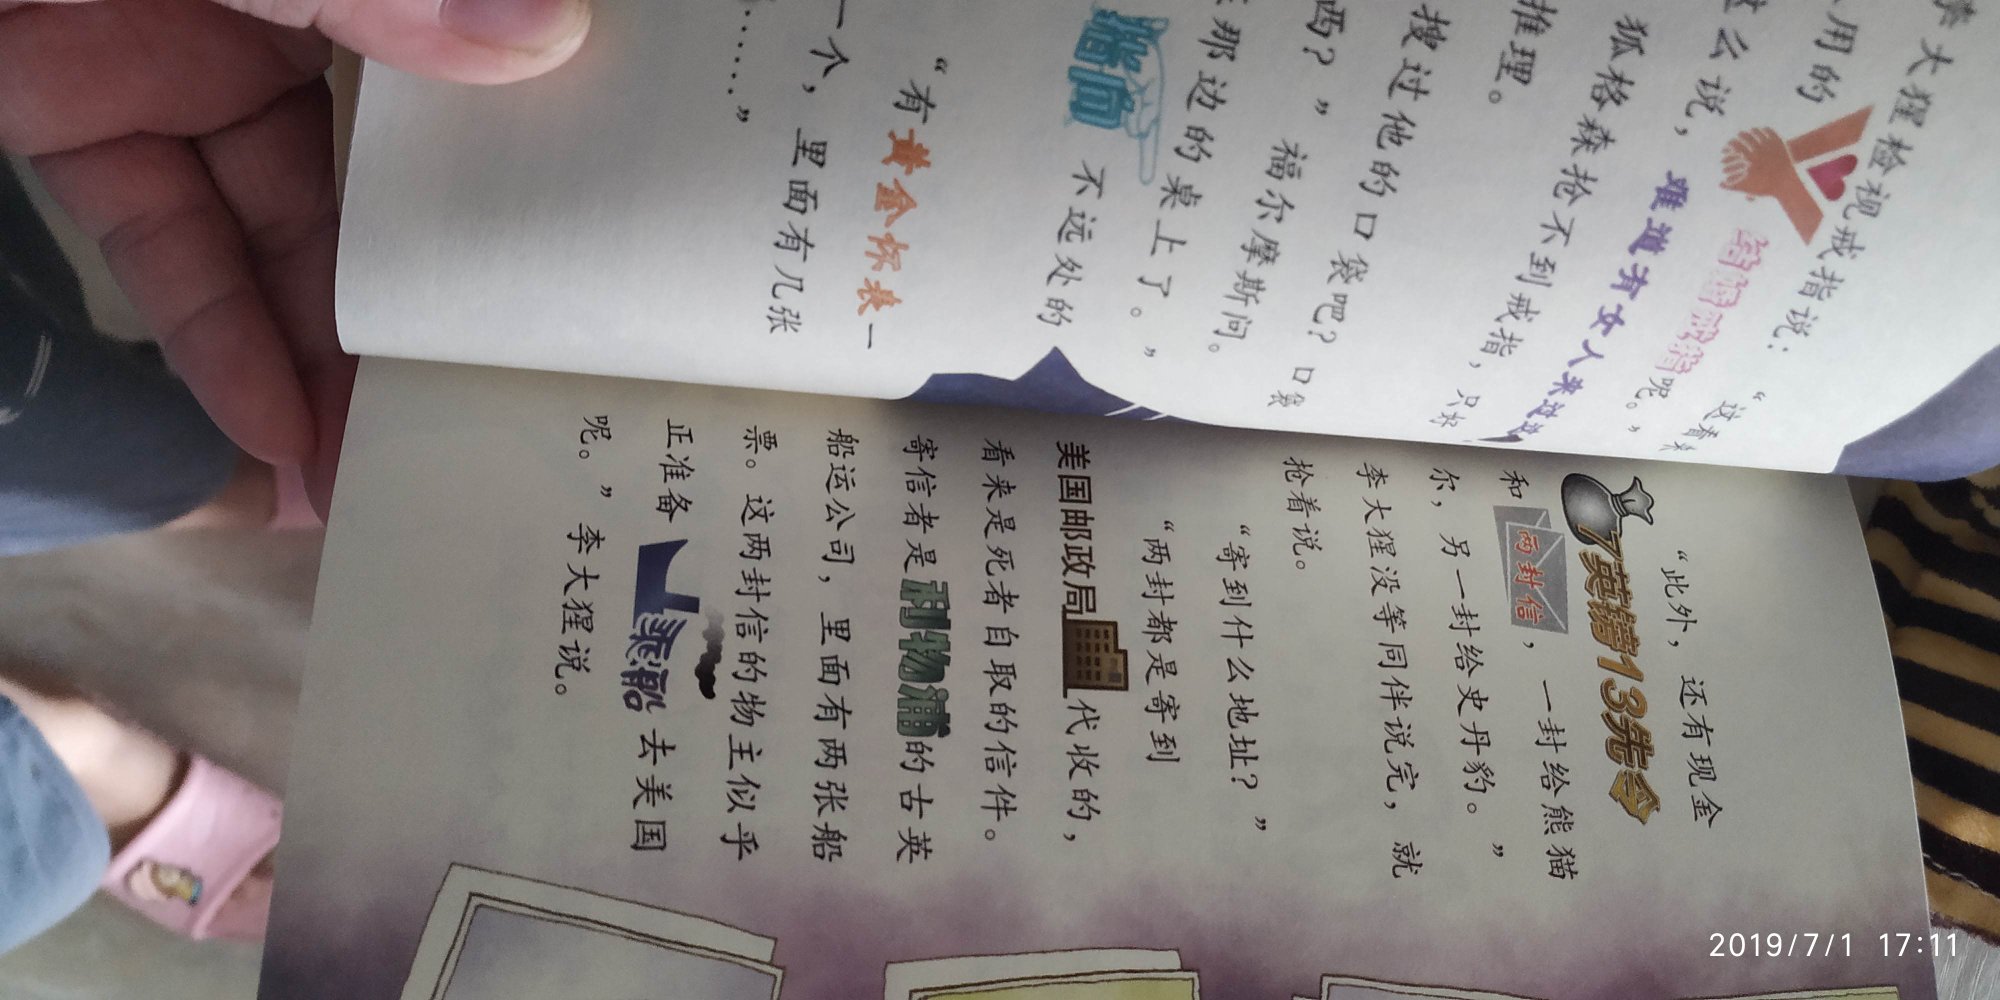 李大猩检视戒指说：“这看来
用的
结婚戒指呢。”
么说，难道有女人来过这
狐格森抢不到戒指，只好
推理。
搜过他的口袋吧？口袋
吗？”福尔摩斯问。
那边的桌上了。”
指向不远处的
“有黄金怀表一
一个，里面有几张
……”
“此外，还有现金
7英镑13先令
和两封信，一封给熊猫
尔，另一封给史丹豹。”
李大猩没等同伴说完，就
抢着说。
“寄到什么地址？”
“两封都是寄到
美国邮政局代收的，
看来是死者自取的信件。
寄信者是利物浦的古英
船运公司，里面有两张船
票。这两封信的物主似乎
正准备乘船去美国
呢。”李大猩说。
2019/7/1 17:11